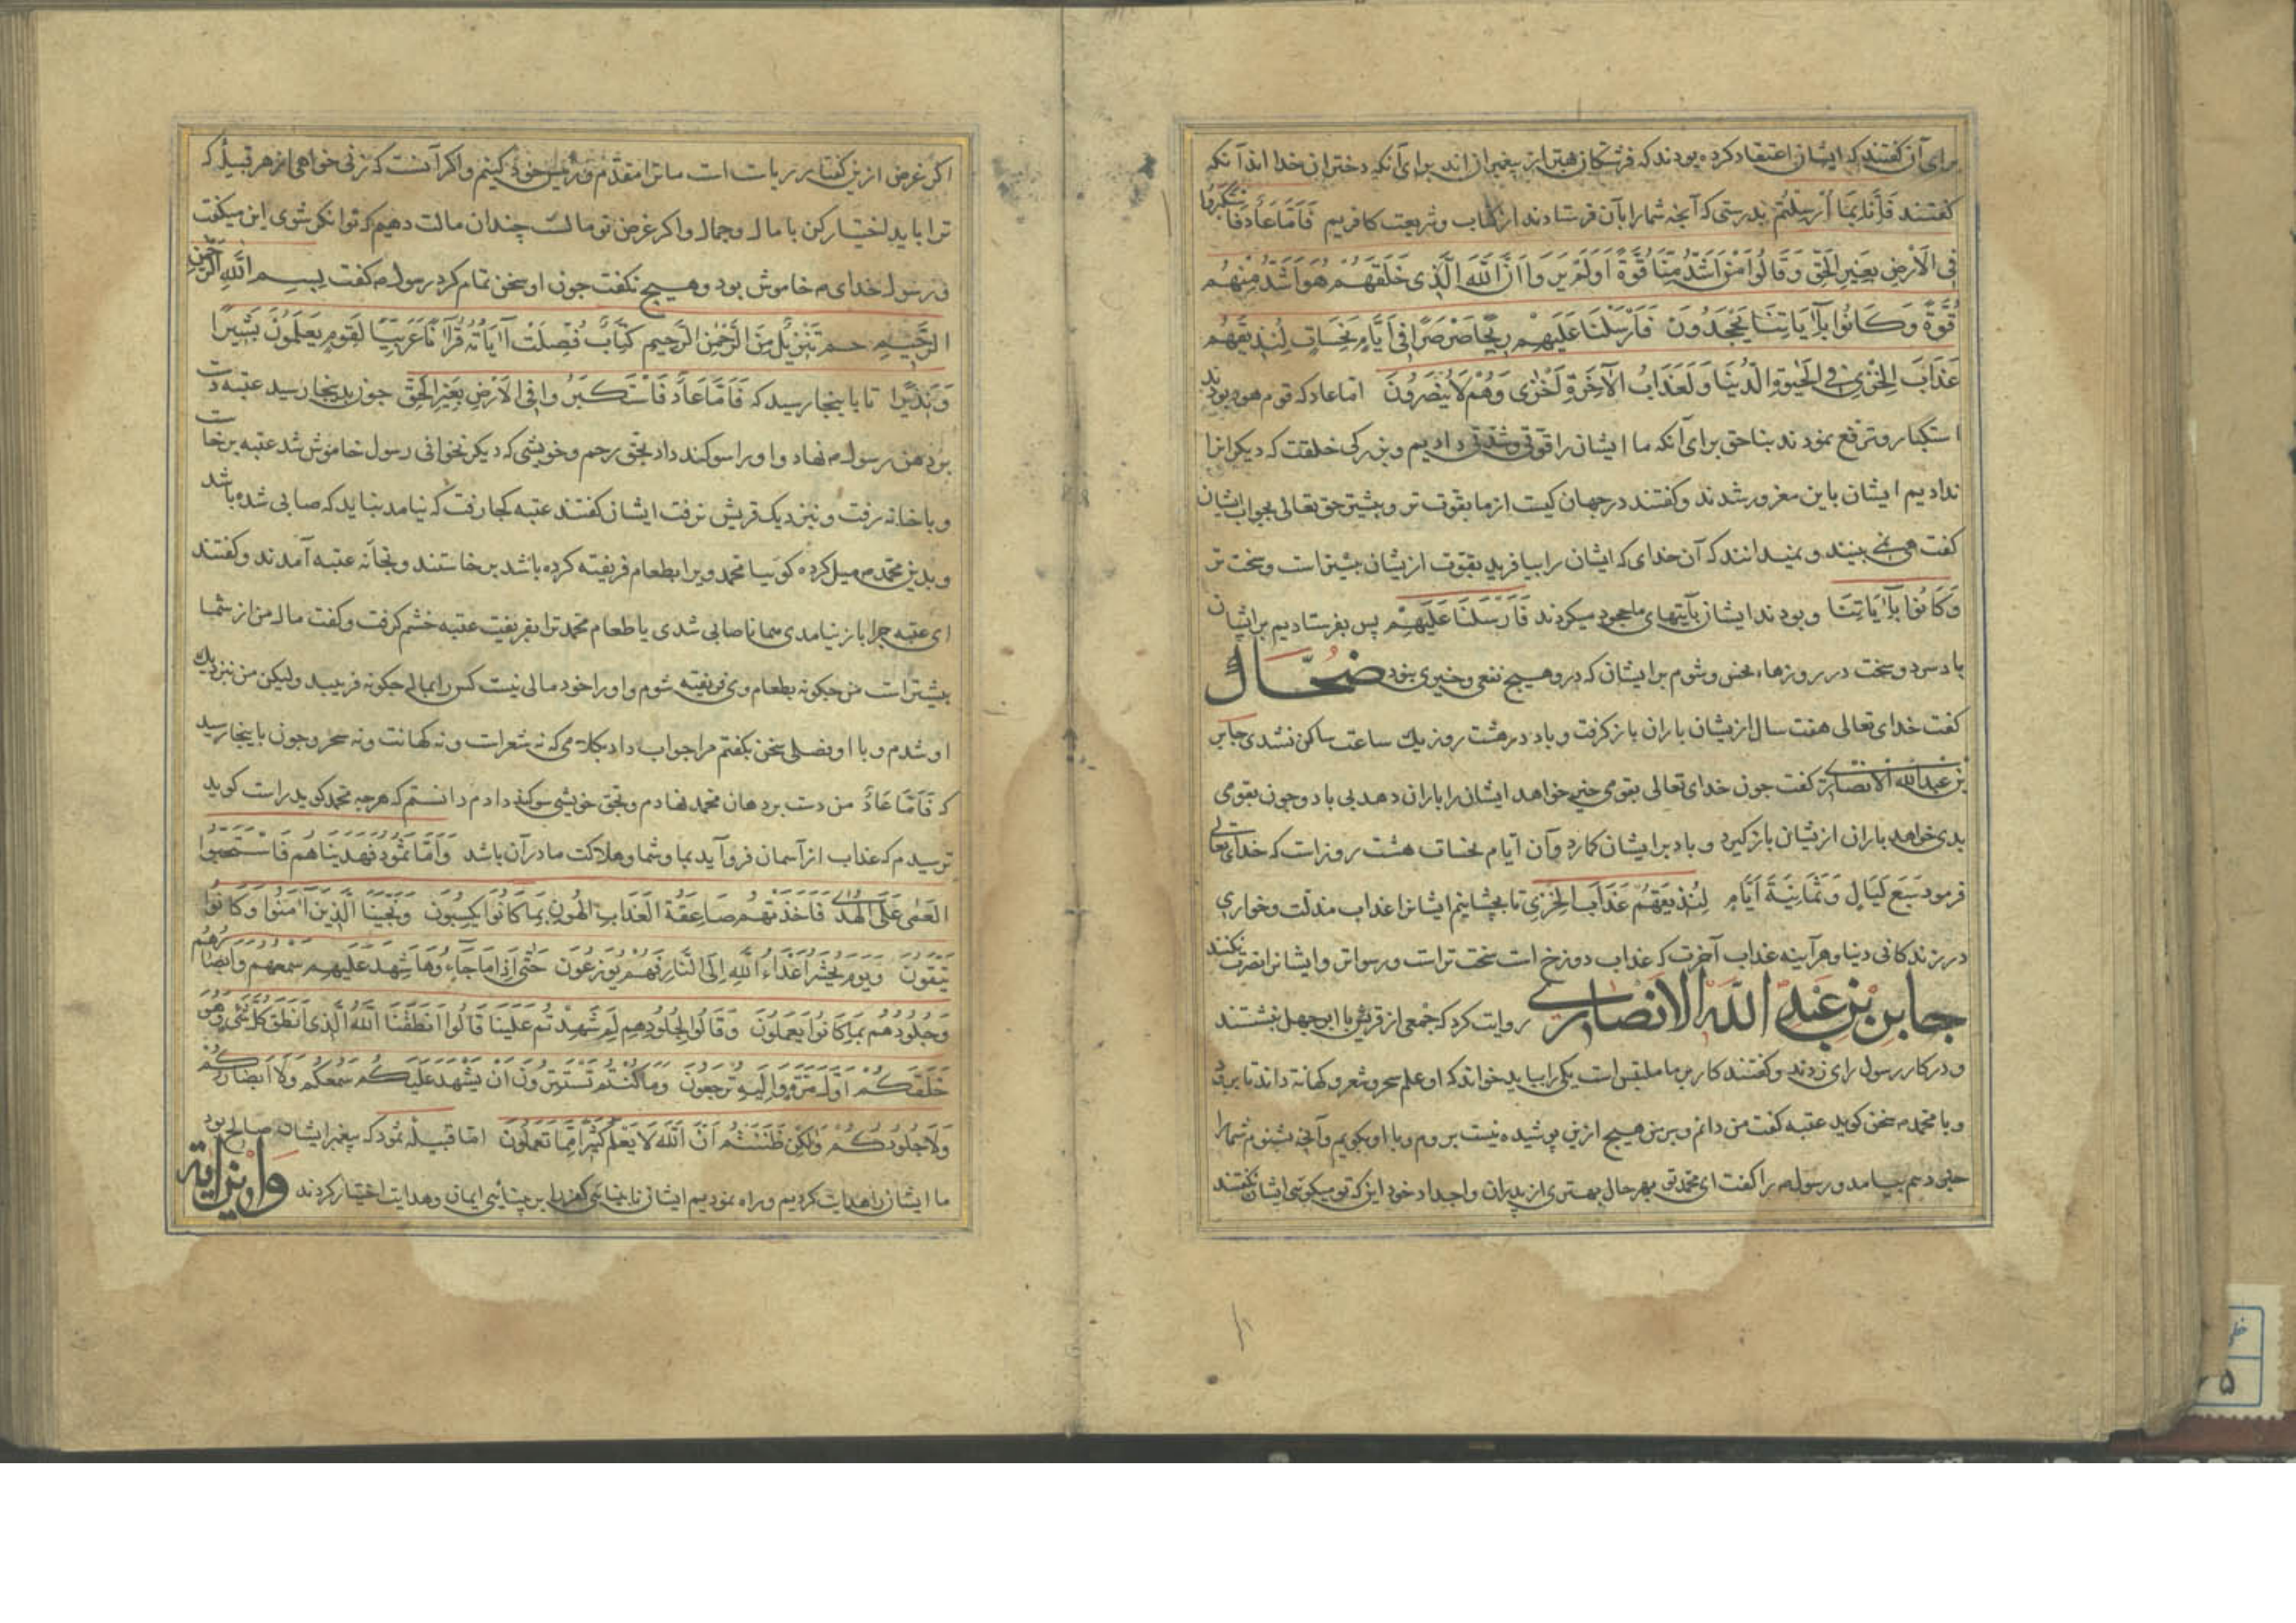 برای آن گفتند که ایشان اعتقاد کرده بودند که فرشتگان بهتر از پیغمبران اند برای آنکه دختران خدا اند آنکه
گفتند فَاِنَّا بِمَا اُرْسِلْتُمْ بدرستی که آنچه شما را بآن فرستادند از کتاب و شریعت کافریم فَاَمَّا عَادٌ فَاسْتَكْبَرُوا
فِی الْاَرْضِ بِغَيْرِ الْحَقِّ وَقَالُوا مَنْ اَشَدُّ مِنَّا قُوَّةً اَوَلَمْ يَرَوْا اَنَّ اللّٰهَ الَّذِی خَلَقَهُمْ هُوَ اَشَدُّ مِنْهُمْ
قُوَّةً وَكَانُوا بِاٰيَاتِنَا يَجْحَدُونَ فَاَرْسَلْنَا عَلَيْهِمْ رِيحًا صَرْصَرًا فِی اَيَّامٍ نَحِسَاتٍ لِنُذِيقَهُمْ
عَذَابَ الْخِزْیِ فِی الْحَيٰوةِ الدُّنْيَا وَلَعَذَابُ الْاٰخِرَةِ اَخْزٰی وَهُمْ لَا يُنْصَرُونَ اما عاد که قوم هود بودند
استکبار و ترفع نمودند بناحق برای آنکه ما ایشان را قوتی و شدتی دادیم و بزرگی خلقت که دیگرانرا
ندادیم ایشان باین مغرور شدند و گفتند در جهان کیست از ما بقوت تر و بیشتر حق تعالی بجواب ایشان
گفت همی نمی بینند و نمیدانند که آن خدای که ایشان را بیافرید بقوت از یشان بیشتر است و سخت تر
وَكَانُوا بِاٰيَاتِنَا و بودند ایشان بآیتهای ما جحود میکردند فَاَرْسَلْنَا عَلَيْهِمْ پس بفرستادیم بر ایشان
باد سرد و سخت در روزهاء نحس و شوم بر ایشان که درو هیچ نفعی و خیری نبود ضحّاك
گفت خدای تعالی هفت سال از یشان باران باز گرفت و باد در هشت روز یك ساعت ساکن نشدی جابر
بن عبدالله الانصاری گفت چون خدای تعالی بقومی خیر خواهد ایشان را باران دهد بی باد و چون بقومی
بدی خواهد باران از یشان باز گیرد و باد بر ایشان گمارد و آن ایام نحسات هشت روز است که خدای تعالی
فرمود سَبْعَ لَيَالٍ وَثَمَانِيَةَ اَيَّامٍ لِنُذِيقَهُمْ عَذَابَ الْخِزْیِ تا بچشانیم ایشانرا عذاب مذلت و خواری
در زندگانی دنیا و هر آینه عذاب آخرت که عذاب دوزخ است سخت تر است و رسواتر و ایشانرا نصرت نکنند
جابر بن عبد الله الانصاری روایت کرد که جمعی از قریش با ابو جهل بنشستند
و در کار رسول رای زدند و گفتند کار بر ما ملتبس است یکی را بباید خواند که او علم سحر و شعر و کهانة داند تا برود
و با محمد سخن گوید عتبه گفت من دانم و بر من هیچ ازین پوشیده نیست بروم و با او بگویم و آنچه بشنوم شما را
خبر دهم بیامد و رسول را گفت ای محمد تو بهر حال بهتری از پدران و اجداد خود این که تو میگویی ایشان نگفتند
اگر غرض ازین گفتار ریاست است ما ترا مقدم و رئیس خود کنیم و اگر آنست که زنی خواهی از هر قبیله که
ترا باید اختیار کن با مال و جمال و اگر غرض تو مالست چندان مالت دهیم که توانگر شوی این میگفت
و رسول خدای خاموش بود و هیچ نگفت چون او سخن تمام کرد رسول گفت بِسْمِ اللّٰهِ الرَّحْمٰنِ
الرَّحِيمِ حم تَنْزِيلٌ مِنَ الرَّحْمٰنِ الرَّحِيمِ كِتَابٌ فُصِّلَتْ اٰيَاتُهُ قُرْاٰنًا عَرَبِيًّا لِقَوْمٍ يَعْلَمُونَ بَشِيرًا
وَنَذِيرًا تا باینجا رسید که فَاَمَّا عَادٌ فَاسْتَكْبَرُوا فِی الْاَرْضِ بِغَيْرِ الْحَقِّ چون بدینجا رسید عتبه دست
بر دهن رسول نهاد و او را سوگند داد بحق رحم و خویشی که دیگر نخوانی رسول خاموش شد عتبه برخاست
و با خانه رفت و نزدیک قریش نرفت ایشان گفتند عتبه کجا رفت که نیامد نباید که صابی شده باشد
و بدین محمد میل کرده گوییا محمد ویرا بطعام فریفته کرده باشد برخاستند و بخانه عتبه آمدند و گفتند
ای عتبه چرا باز نیامدی همانا صابی شدی یا طعام محمد ترا بفریفت عتبه خشم گرفت و گفت مال من از شما
بیشتر است من چگونه بطعام وی فریفته شوم و او را خود مالی نیست کس را بمالی چگونه فریبد ولیکن من نزدیك
او شدم و با او فصلی سخن بگفتم مرا جواب داد بکلامی که نه شعر است و نه کهانت و نه سحر و چون باینجا رسید
که فَاَمَّا عَادٌ من دست بر دهان محمد نهادم و بحق خویشی سوگند دادم دانستم که هرچه محمد گوید راست گوید
ترسیدم که عذاب از آسمان فرو آید بما و شما و هلاکت ما در آن باشد وَاَمَّا ثَمُودُ فَهَدَيْنَاهُمْ فَاسْتَحَبُّوا
الْعَمٰی عَلَی الْهُدٰی فَاَخَذَتْهُمْ صَاعِقَةُ الْعَذَابِ الْهُونِ بِمَا كَانُوا يَكْسِبُونَ وَنَجَّيْنَا الَّذِينَ اٰمَنُوا وَكَانُوا
يَتَّقُونَ وَيَوْمَ يُحْشَرُ اَعْدَاءُ اللّٰهِ اِلَی النَّارِ فَهُمْ يُوزَعُونَ حَتّٰی اِذَا مَا جَاءُوهَا شَهِدَ عَلَيْهِمْ سَمْعُهُمْ وَاَبْصَارُهُمْ
وَجُلُودُهُمْ بِمَا كَانُوا يَعْمَلُونَ وَقَالُوا لِجُلُودِهِمْ لِمَ شَهِدْتُمْ عَلَيْنَا قَالُوا اَنْطَقَنَا اللّٰهُ الَّذِی اَنْطَقَ كُلَّ شَیْءٍ وَهُوَ
خَلَقَكُمْ اَوَّلَ مَرَّةٍ وَاِلَيْهِ تُرْجَعُونَ وَمَا كُنْتُمْ تَسْتَتِرُونَ اَنْ يَشْهَدَ عَلَيْكُمْ سَمْعُكُمْ وَلَا اَبْصَارُكُمْ
وَلَا جُلُودُكُمْ وَلٰكِنْ ظَنَنْتُمْ اَنَّ اللّٰهَ لَا يَعْلَمُ كَثِيرًا مِمَّا تَعْمَلُونَ اما قبیله ثمود که پیغمبر ایشان صالح بود
ما ایشان را هدایت کردیم و راه نمودیم ایشان نابینائی کفر را بر بینائی ایمان و هدایت اختیار کردند